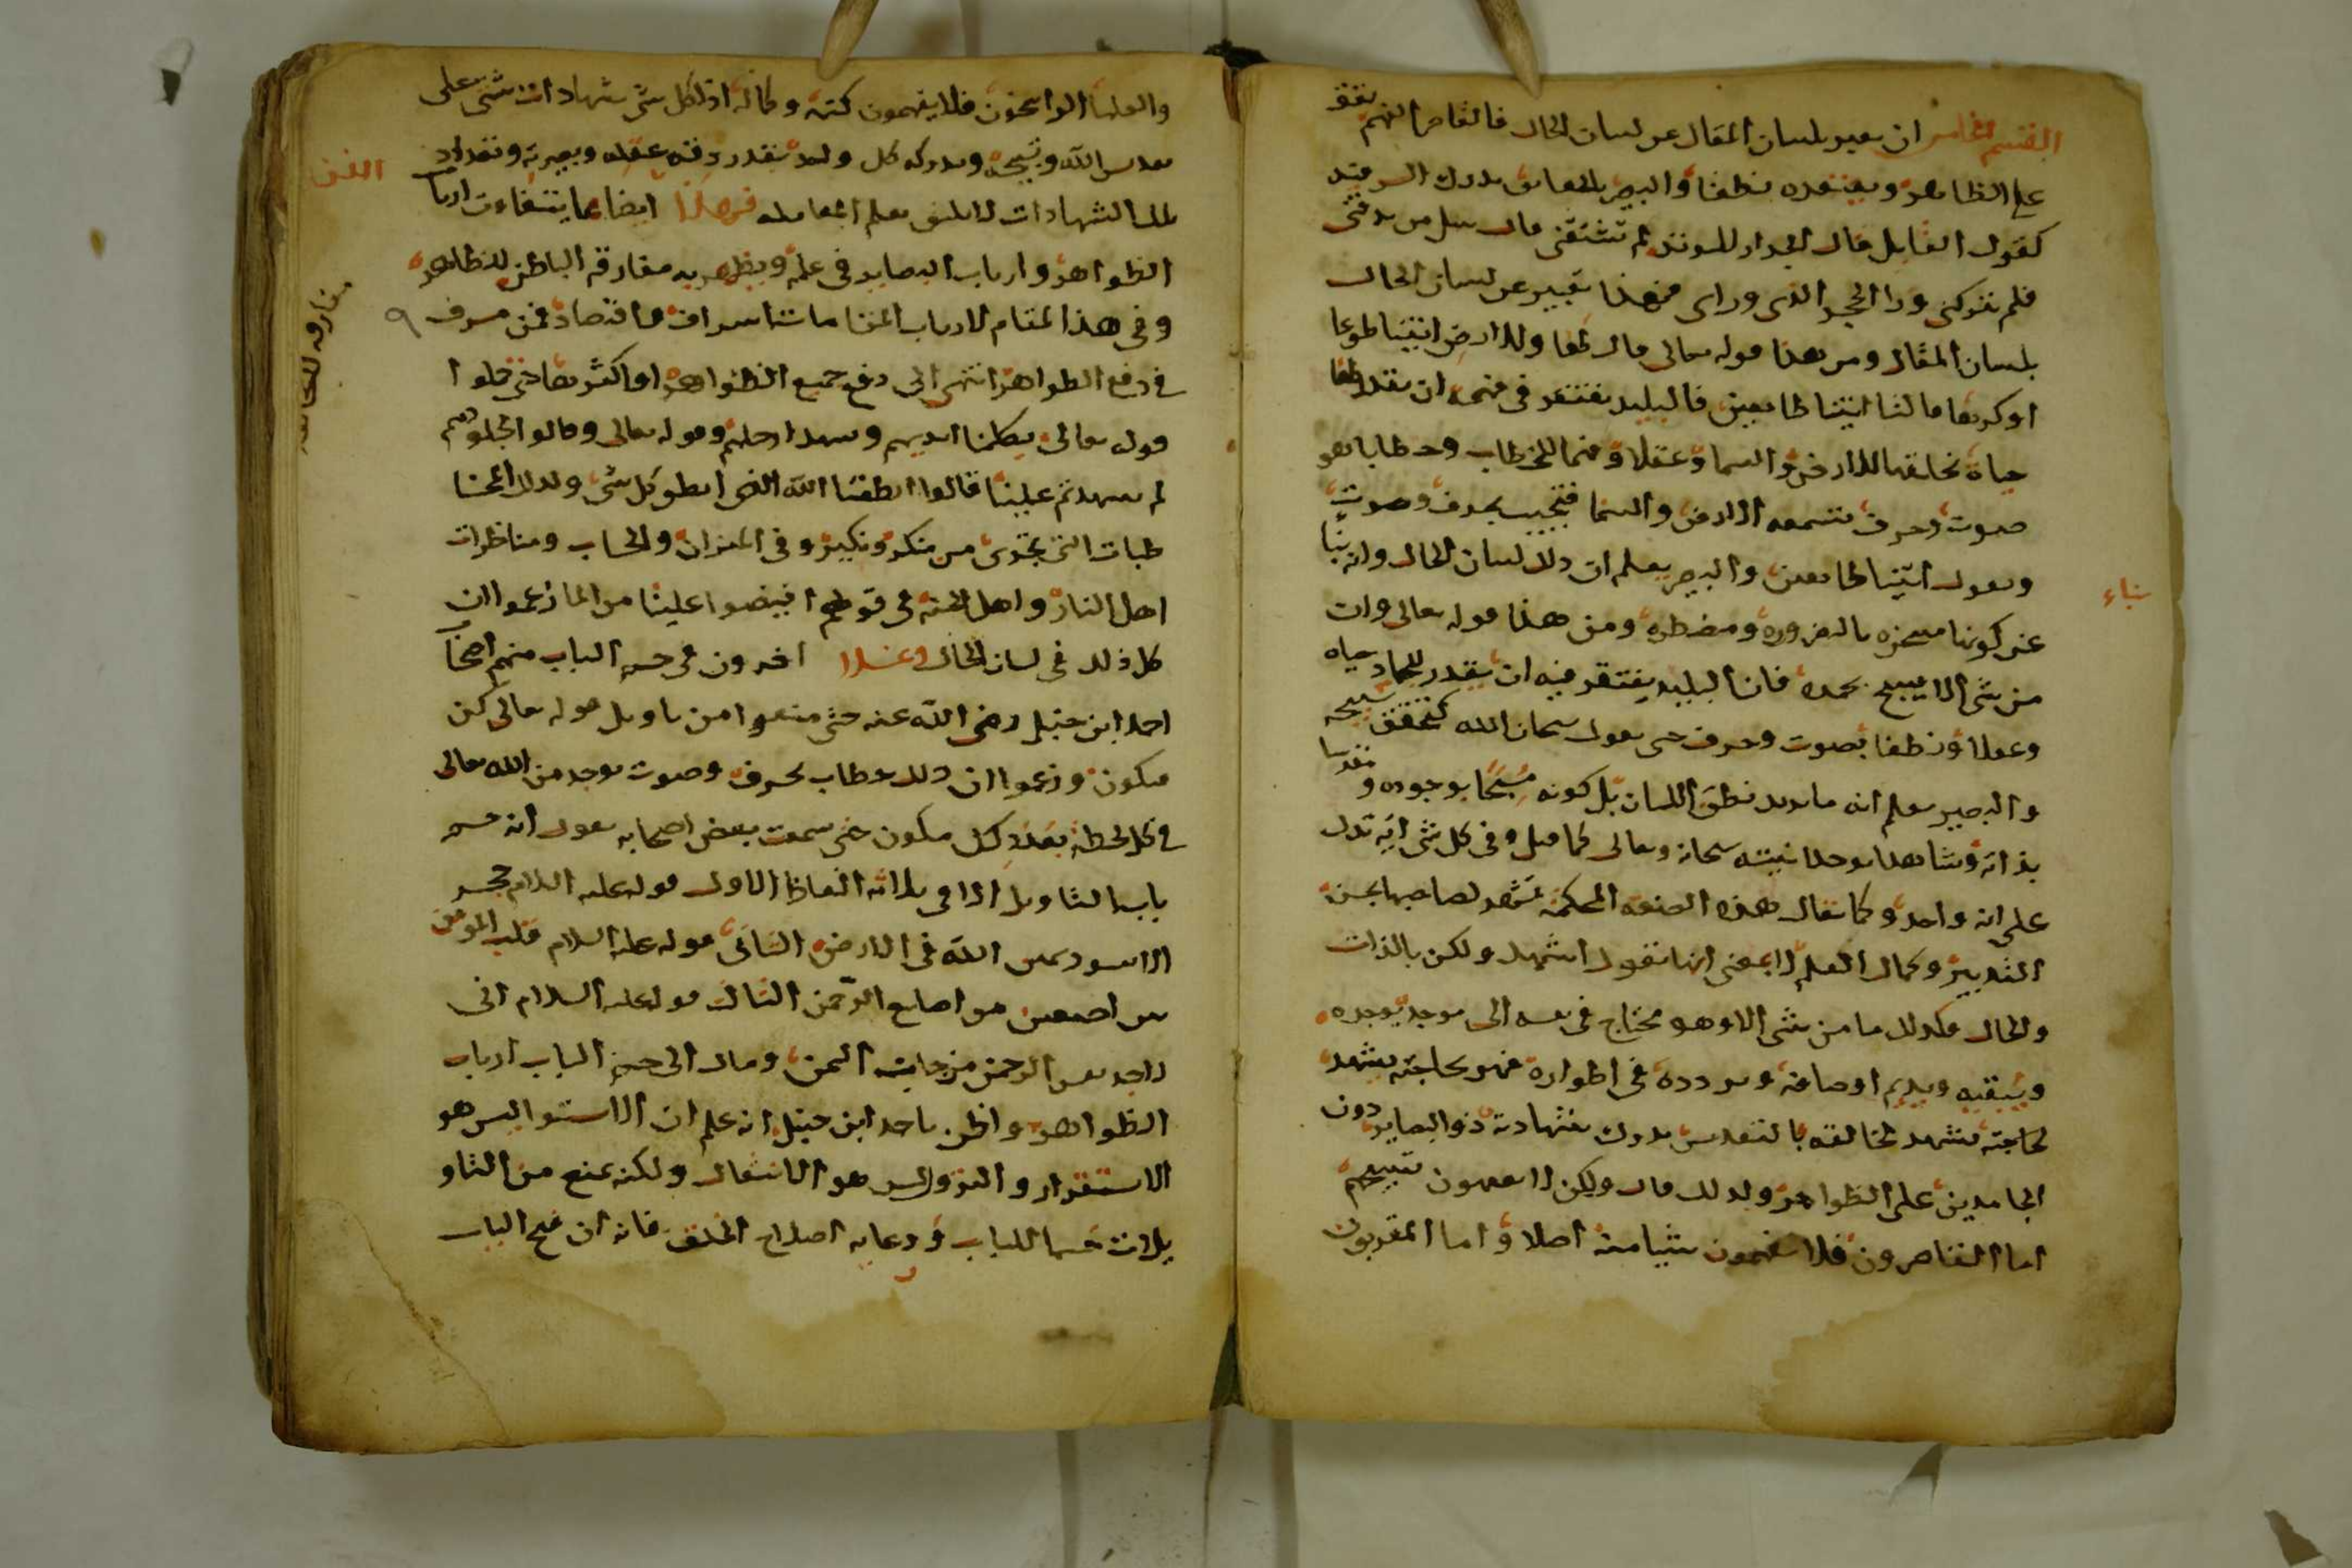 القسم الخامس ان يعبر بلسان المقال عن لسان الحال فالقاصر الفهم يقف
على الظاهر ويعتقده نطقا والبصير بالحقائق يدرك السر فيه
كقول القايل قال الجدار للوتد لم تشقني قال سل من يدقني
فلم يتركني ورا الحجر الذي وراى فهذا تعبير عن لسان الحال
بلسان المقال ومن هذا قوله تعالى فقال لها وللارض ائتيا طوعا
او كرها قالتا اتينا طايعين فالبليد يفتقر في فهمه ان يقدر لهما
حياة تخلقها للارض والسما وعقلا وفهما للخطاب وخطابا هو
صوت وحرف تسمعه الارض والسما فتجيب بحرف وصوت
وتقول اتينا طايعين والبصير يعلم ان ذلك لسان الحال وانه نبا
نباء
عن كونها مسخره بالضروره ومضطره ومن هذا قوله تعالى وان
من شى الا يسبح بحمده فان البليد يفتقر فيه ان يقدر للجماد حياه
وعقلا ونطقا بصوت وحرف حتى يقول سبحان الله ليتحقق تسبيحه
والبصير يعلم انه ما يريد نطق اللسان بل كونه مسبحا بوجوده ومقدسا
بذاته وشاهدا بوحدانيته سبحانه وتعالى كما قيل وفي كل شى ايه تدل
على انه واحد وكما يقال هذه الصنعه المحكمه تشهد لصاحبها بحسن
التدبير وكمال العلم لا بمعنى انها تقول اشهد ولكن بالذات
والحال وكذلك ما من شى الا وهو محتاج في نفسه الى موجد يوجده
ويبقيه ويديم اوصافه ويردده في اطواره فهو بحاجته يشهد
لخالقه بالتقديس يدرك شهادته ذو البصاير دون
الجامدين على الظواهر ولذلك قال ولكن لا تفقهون تسبيحهم
اما القاصرون فلا يفقهون شيا منه اصلا واما المقربون
والعلما الراسخون فلا يفهمون كنهه وكماله اذ لكل شى شهادات شتى على
تقديس الله وتسبيحه ويدركه كل واحد بقدر رزقه عقله وبصيرته وتعداد
تلك الشهادات لا يليق بعلم المعامله فهذا ايضا مما يتفاوت ارباب
الفن
الظواهر وارباب البصاير في علمه ويظهر به مفارقه الباطن للظاهر
وفي هذا المقام لارباب المقامات اسراف واقتصاد فمن مسرف
في رفع الظواهر انتهى الى رفع جميع الظواهر او اكثرها حتى حملوا
قوله تعالى تكلمنا ايديهم وتشهد ارجلهم وقوله تعالى وقالوا لجلودهم
لم شهدتم علينا قالوا انطقنا الله الذي انطق كل شى وكذلك المخا
طبات التي تجرى من منكر ونكير وفي الميزان والحساب ومناظرات
اهل النار واهل الجنه في قولهم افيضوا علينا من الما زعموا ان
كل ذلك في لسان الحال وغلا اخرون في حسم الباب منهم
احمد ابن حنبل رضي الله عنه حتى منعوا من تاويل قوله تعالى كن
فيكون وزعموا ان ذلك خطاب بحرف وصوت يوجد من الله تعالى
في كل لحظه بعدد كل مكون حتى سمعت بعض اصحابه يقول انه حسم
باب التاويل الا في ثلاثه الفاظ الاول قوله عليه السلام الحجر
الاسود يمين الله في الارض الثانى قوله عليه السلام قلب المومن
بين اصبعين من اصابع الرحمن الثالث قوله عليه السلام انى
لاجد نفس الرحمن من جانب اليمن ومال الى حسم الباب ارباب
الظواهر والظن باحمد ابن حنبل انه علم ان الاستوا ليس هو
الاستقرار والنزول ليس هو الانتقال ولكنه منع من التاو
يلات حسما للباب ورعايه اصلاح الخلق فانه ان فتح الباب